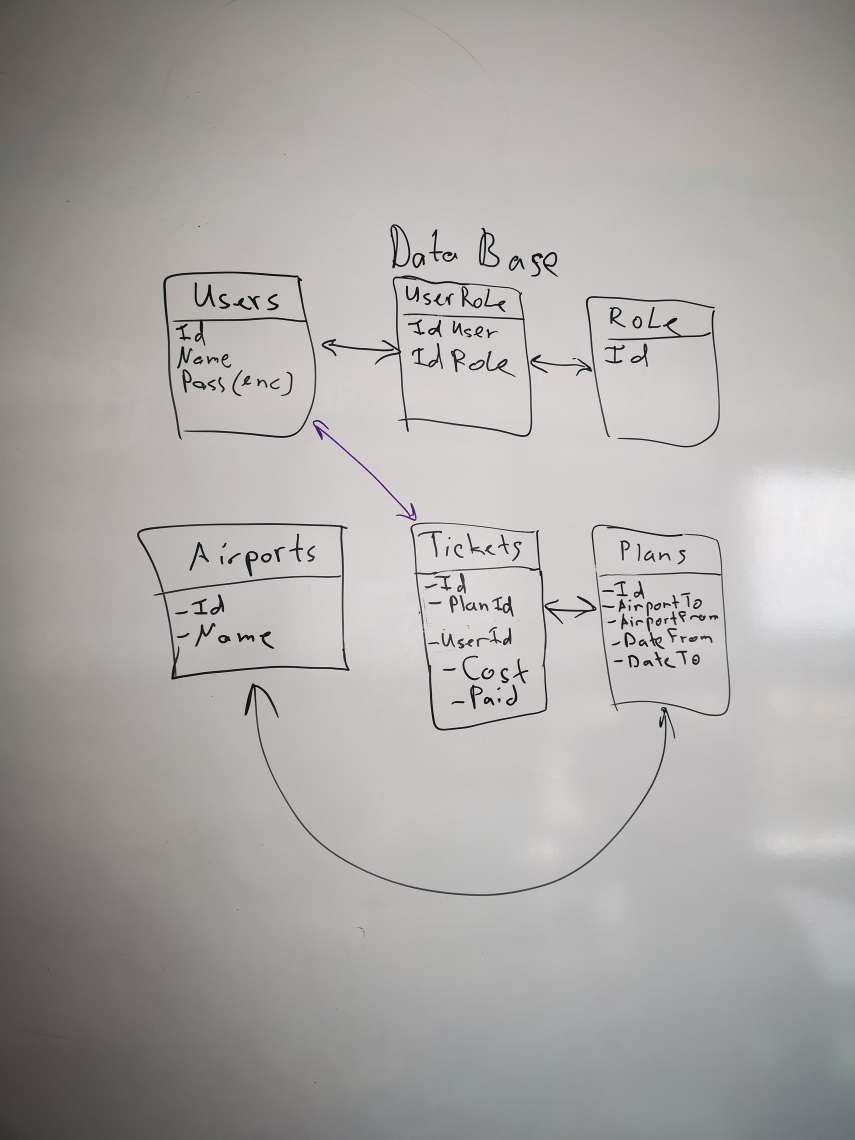 Data Base
Users
Id
Name
Pass (enc)
UserRole
Id User
Id Role
Role
Id
Airports
-Id
-Name
Tickets
-Id
-PlanId
-UserId
-Cost
-Paid
Plans
-Id
-AirportTo
-AirportFrom
-DateFrom
-DateTo